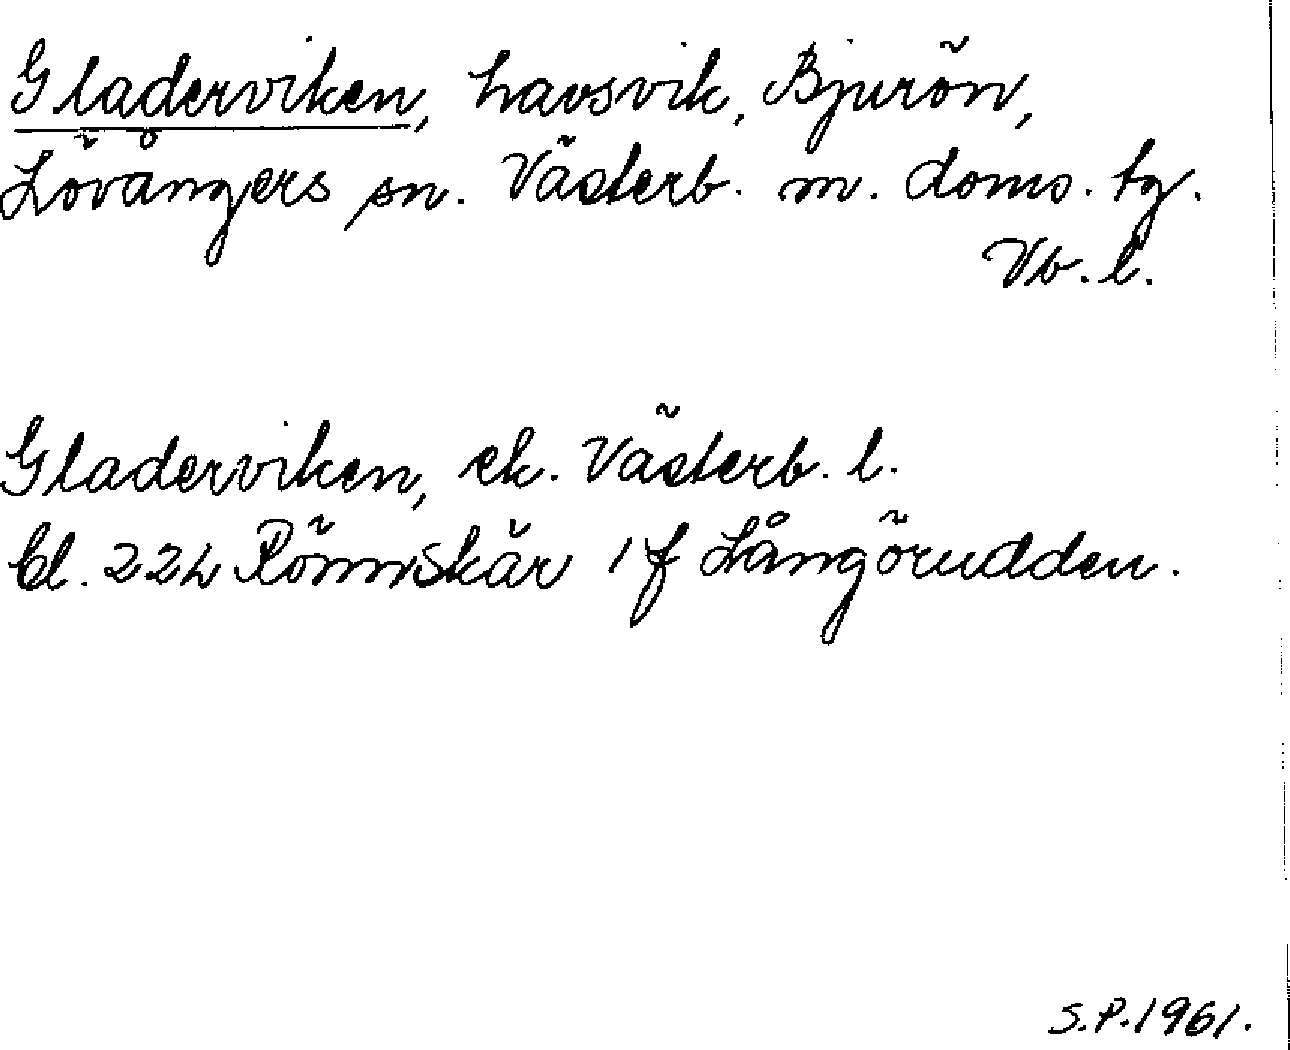 Gladerviken, havsvik, Bjurön,
Lövångers sn. Västerb. m. doms. tg.
Vb. l.
Gladerviken, ek. Västerb. l.
Bl. 22L Rönnskär 1f Långörudden.
S.P.1961.